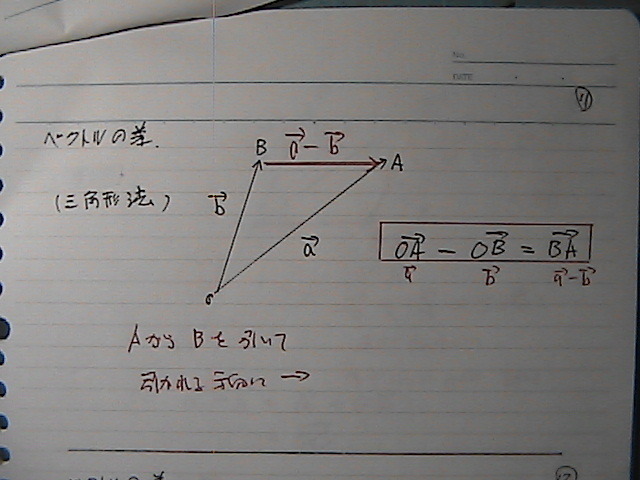 No.
DATE
⑪
ベクトルの差.
(三角形法)
B
a⃗ - b⃗
A
b⃗
a⃗
O
OA⃗ - OB⃗ = BA⃗
a⃗ b⃗ a⃗-b⃗
AからBを引いて
引かれる方向に →
ベクトルの差
⑫